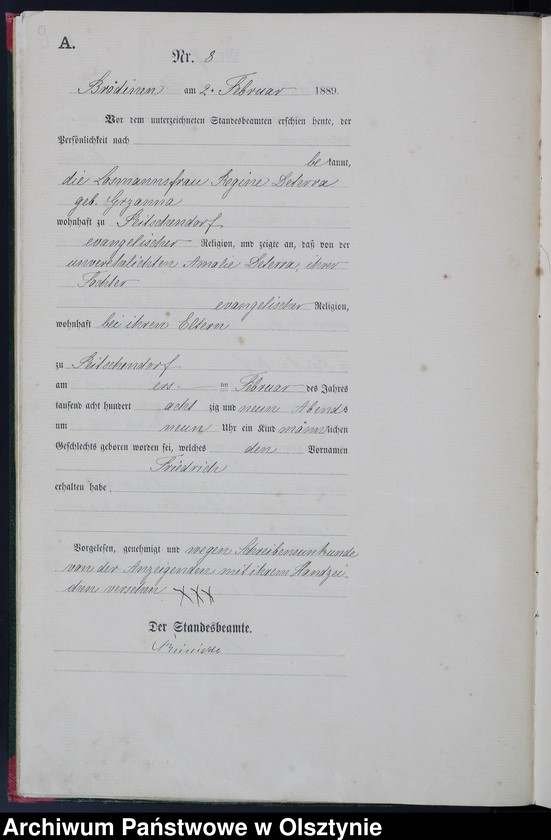 A.
Nr. 8
Brödinen am 2. Februar 1889.
Vor dem unterzeichneten Standesbeamten erschien heute, der
Persönlichkeit nach
bekannt,
die Losmannsfrau Regine
geb. Grzanna
wohnhaft zu
evangelischer Religion, und zeigte an, daß von der
unverehelichten Amalie ihrer
Tochter
evangelischer Religion,
wohnhaft bei ihren Eltern
zu
am ers- ten Februar des Jahres
tausend acht hundert acht zig und neun Abends
um neun Uhr ein Kind männlichen
Geschlechts geboren worden sei, welches den Vornamen
Friedrich
erhalten habe.
Vorgelesen, genehmigt und wegen Schreibensunkunde
von der Anzeigenden mit ihrem Handzei-
chen versehen XXX
Der Standesbeamte.
Archiwum Państwowe w Olsztynie